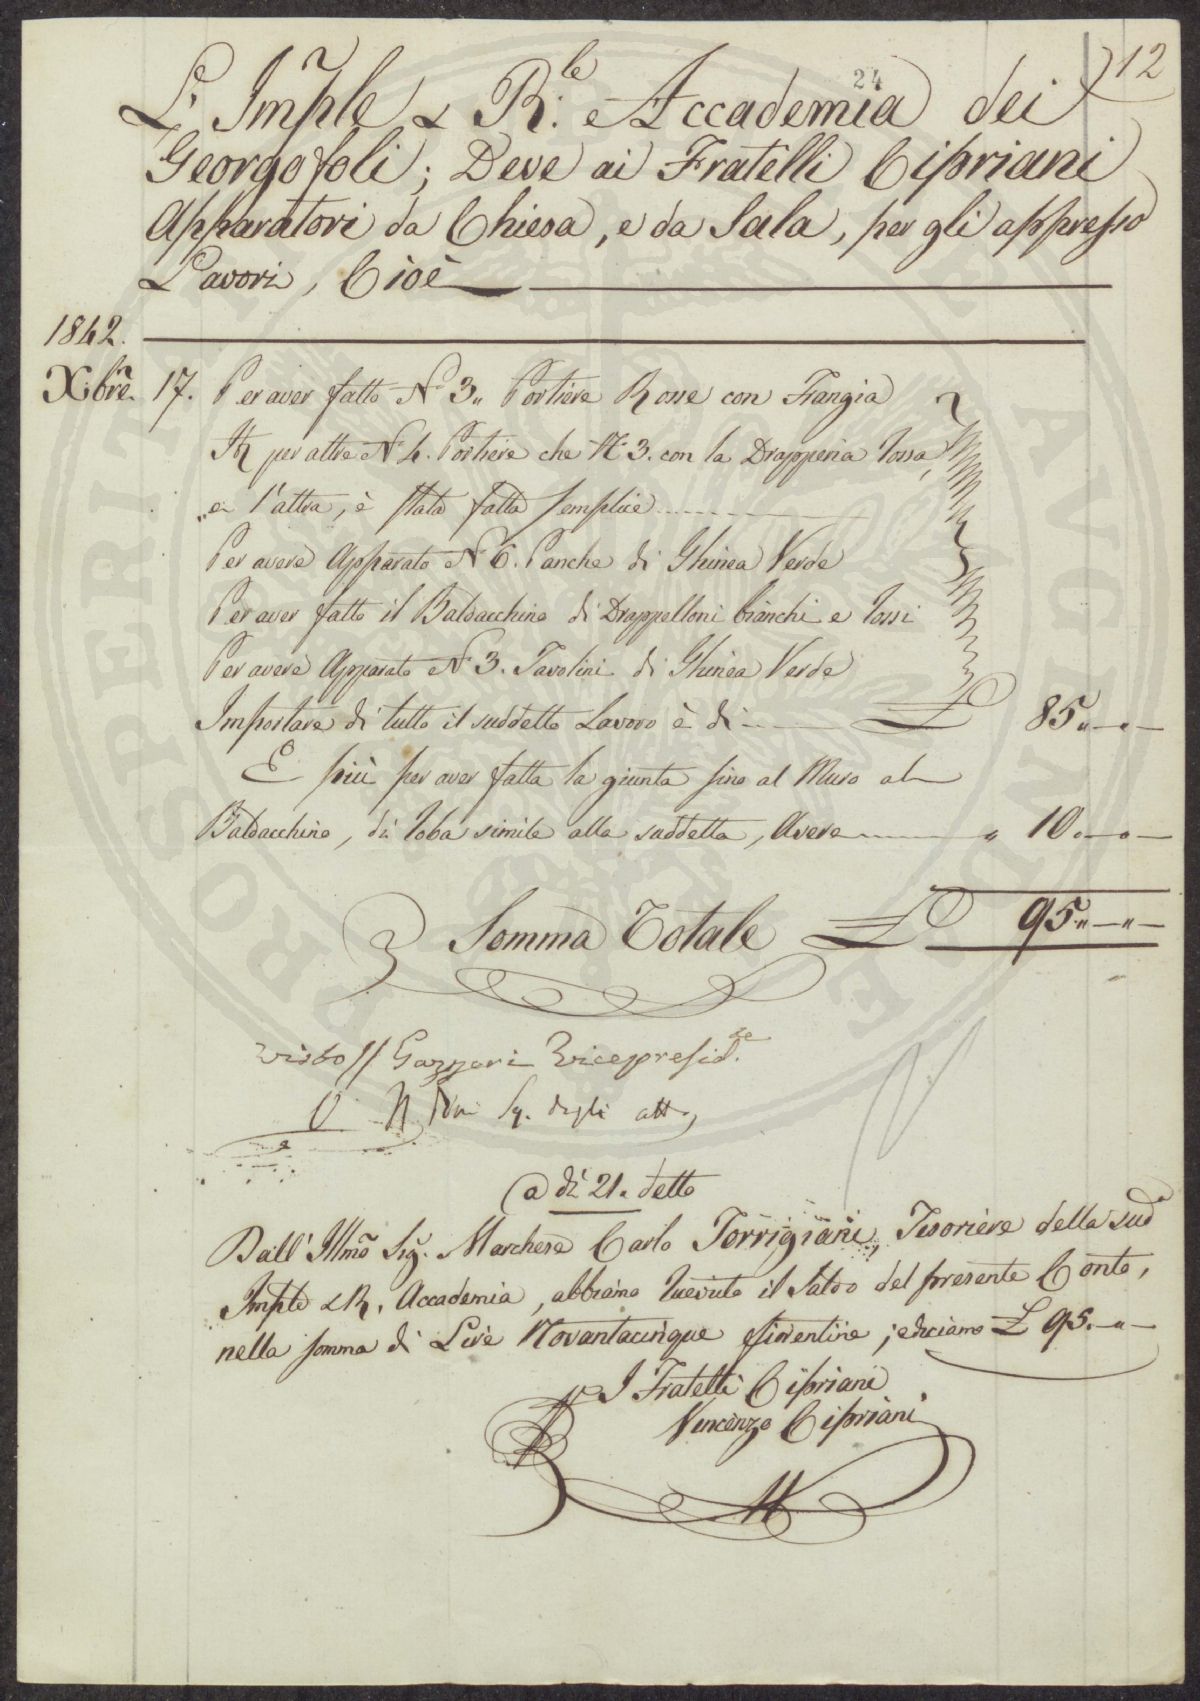 12
24
L' Imple & R.le Accademia dei
Georgofoli; Deve ai Fratelli Cipriani
Apparatori da Chiesa, e da Sala, per gli appresso
Lavori, Cioè
1842.
Xbre. 17. Per aver fatto No 3,, Portiere Rosse con Frangia
per altre No 4. Portiere che No 3. con la Drapperia rossa,
e l'altra, è stata fatta semplice
Per avere Apparato No 6. Panche di Ghinea Verde
Per aver fatto il Baldacchino di Drappelloni bianchi e rossi
Per avere Apparato No 3. Tavolini di Ghinea Verde
Importare di tutto il suddetto Lavoro è di £ 85.,,—,,—
E più per aver fatta la giunta sino al Muro al
Baldacchino, di roba simile alla suddetta, Avere ,, 10.—.—
Somma Totale £ 95.,,—,,—
visto // Gazzeri Vicepresid.te
V Seg. degli atti
a dì 21. detto
Dall' Illmo Sig. Marchese Carlo Torrigiani, Tesoriere della sud.a
Imple & R. Accademia, abbiamo ricevuto il Saldo del presente Conto,
nella somma di Lire Novantacinque fiorentine; e diciamo £ 95.—,,—
I Fratelli Cipriani
Vincenzo Cipriani
PROSPERITATI AVGENDAE